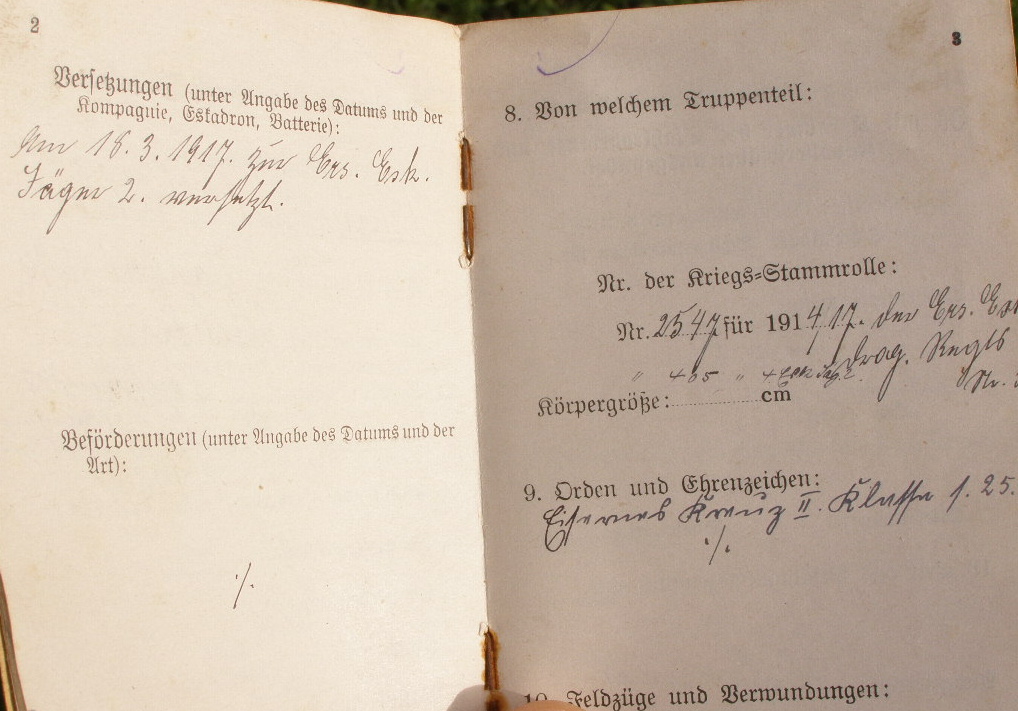 2
Versetzungen (unter Angabe des Datums und der
Kompagnie, Eskadron, Batterie):
Am 18. 3. 1917. zur Ers. Esk.
Jäger 2. versetzt.
Beförderungen (unter Angabe des Datums und der
Art):
./.
3
8. Von welchem Truppenteil:
Nr. der Kriegs=Stammrolle:
Nr. 2547 für 1914/17. der Ers. Esk
Drag. Regts
Nr.
" 405 "
Körpergröße: cm
9. Orden und Ehrenzeichen:
Eisernes Kreuz II. Klasse 1. 25.
./.
10. Feldzüge und Verwundungen: